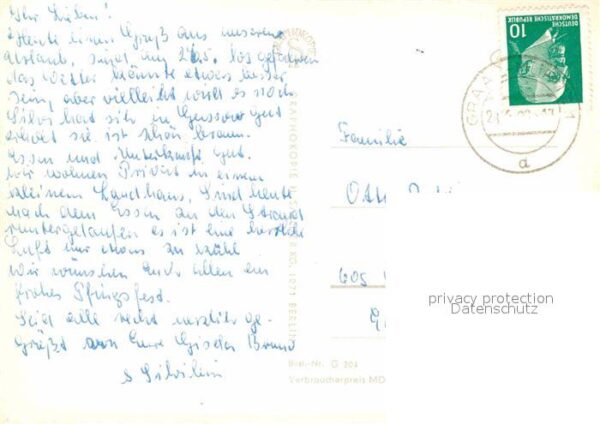 Ihr Lieben!
Heute einen Gruß aus unserem
Urlaub, sind am 27.5. losgefahren
das Wetter könnte etwas besser
sein, aber vielleicht wird es noch
Silvi hat sich in Gussow gut
erholt sie ist schön braun.
Essen und Unterkunft gut.
Wir wohnen Privat in einem
kleinem Landhaus, Sind heute
nach dem Essen an den Strand
runtergelaufen es ist eine herrliche
Luft nur etwas zu kühl
Wir wünschen Euch allen ein
frohes Pfingstfest.
Seid alle recht herzlich ge-
grüßt von Eure Gisela Bruno
& Silvilein
Familie
Otto
605
Best.-Nr. G 204
Verbraucherpreis MD
10
DEUTSCHE
DEMOKRATISCHE REPUBLIK
GRAAL
a
privacy protection
Datenschutz